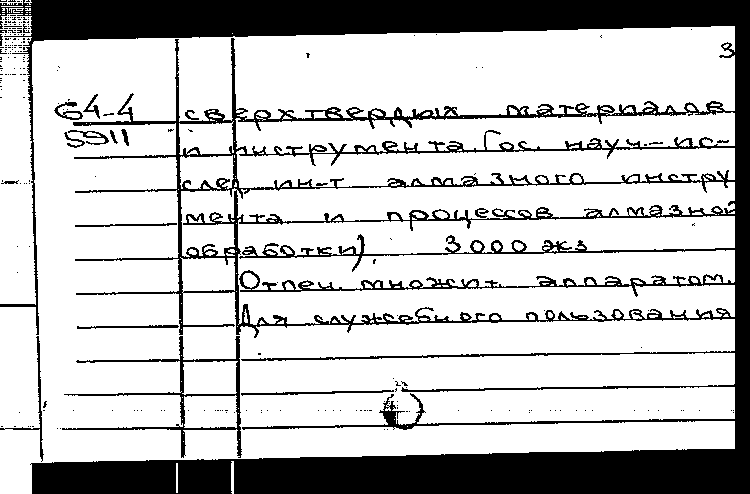 3
64-4
5911
сверхтвердых материалов
и инструмента. Гос. науч.-ис-
след. ин-т алмазного инстру
мента и процессов алмазной
обработки). 3000 экз
Отпеч. множит. аппаратом.
Для служебного пользования